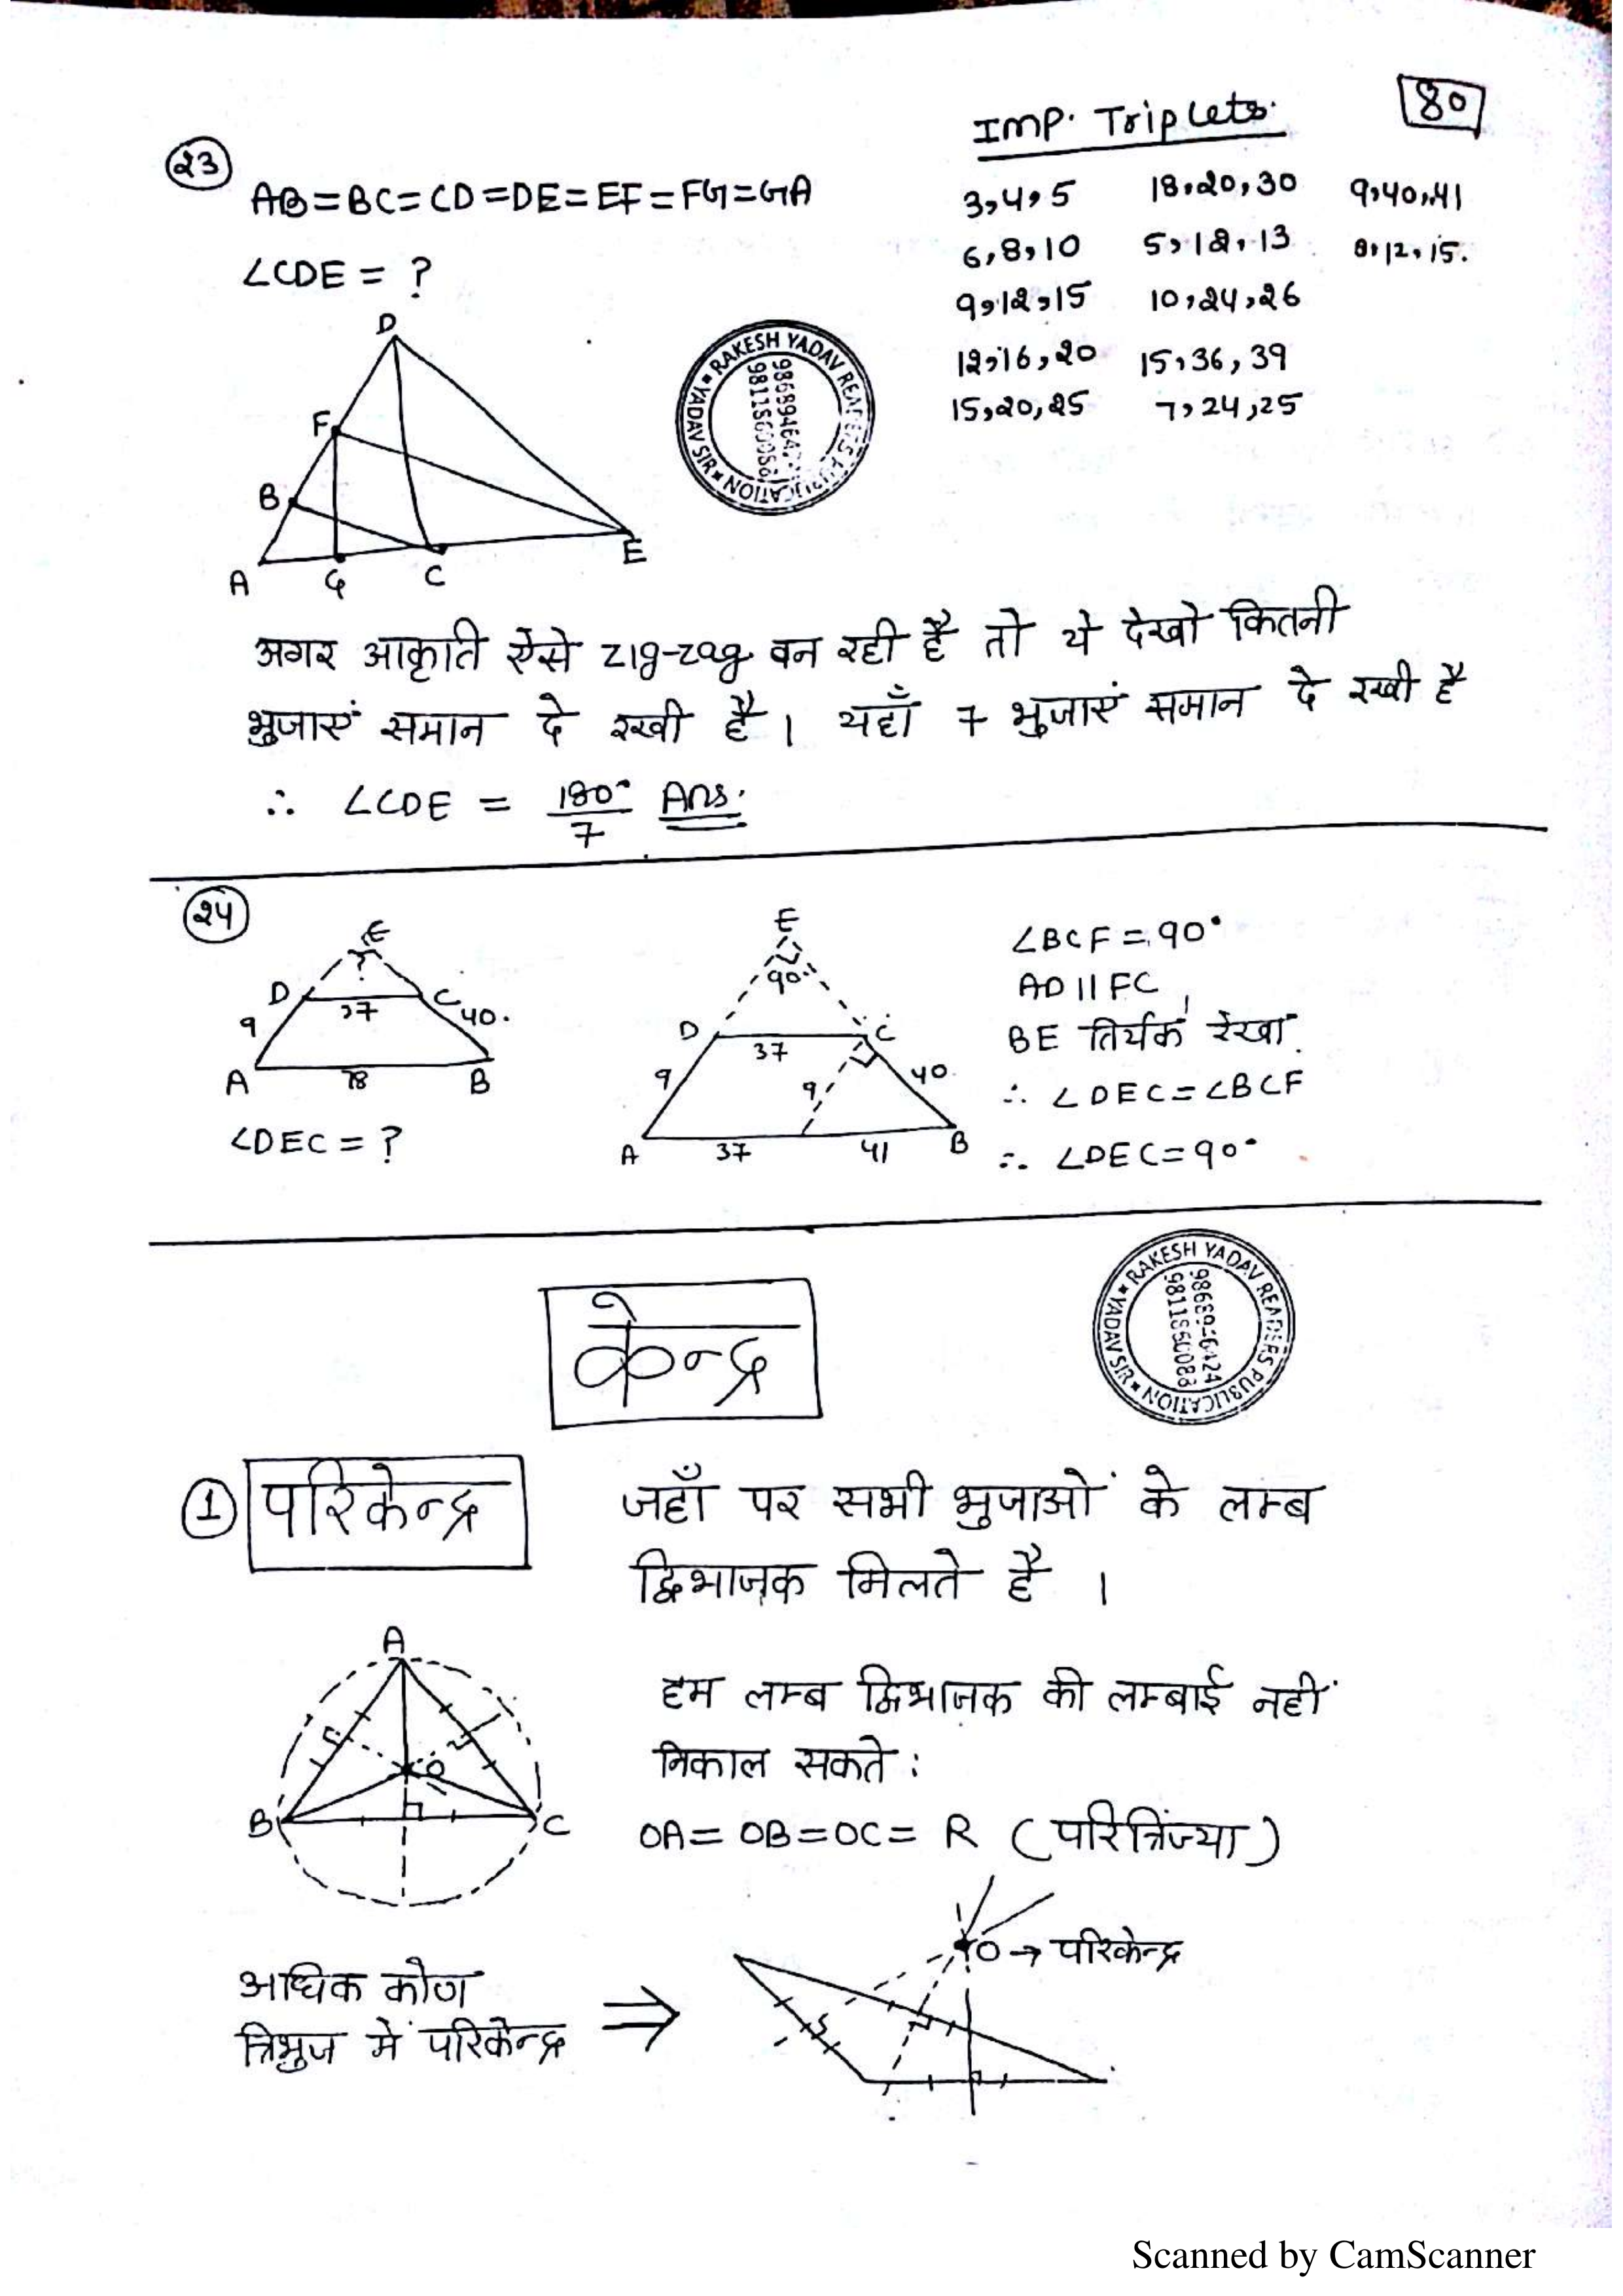 80
23
AB=BC=CD=DE=EF=FG=GA
∠CDE = ?
D
F
B
A G C E
Imp. Triplets.
3,4,5 18,20,30 9,40,41
6,8,10 5,12,13 8,12,15.
9,12,15 10,24,26
12,16,20 15,36,39
15,20,25 7,24,25
RAKESH YADAV READERS PUBLICATION
YADAV SIR
अगर आकृति ऐसे zig-zag बन रही है तो ये देखो कितनी
भुजाएं समान दे रखी है। यहाँ 7 भुजाएं समान दे रखी है
∴ ∠CDE = 180°/7 Ans.
24
E
?
D C
9 37 40.
A 78 B
∠DEC = ?
E
90°
D C
37
9 9 40
A 37 41 B
∠BCF = 90°
AD || FC,
BE तिर्यक रेखा.
∴ ∠DEC = ∠BCF
∴ ∠DEC = 90°
केन्द्र
RAKESH YADAV READERS PUBLICATION
YADAV SIR
1 परिकेन्द्र
जहाँ पर सभी भुजाओं के लम्ब
द्विभाजक मिलते है ।
A
O
B C
हम लम्ब द्विभाजक की लम्बाई नहीं
निकाल सकते :
OA = OB = OC = R (परित्रिज्या)
अधिक कोण
त्रिभुज में परिकेन्द्र ⇒
O → परिकेन्द्र
Scanned by CamScanner